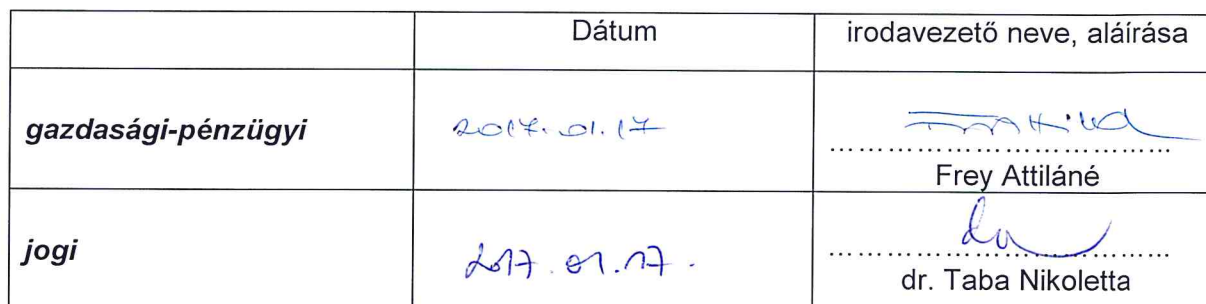 Dátum
irodavezető neve, aláírása
gazdasági-pénzügyi
2017.01.17
Frey Attiláné
jogi
2017.01.17.
dr. Taba Nikoletta